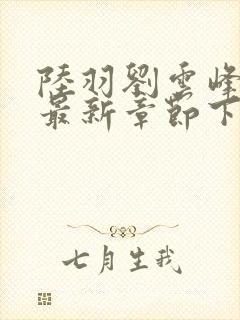 陸羽劉雲峰
最新章節下
七月生我